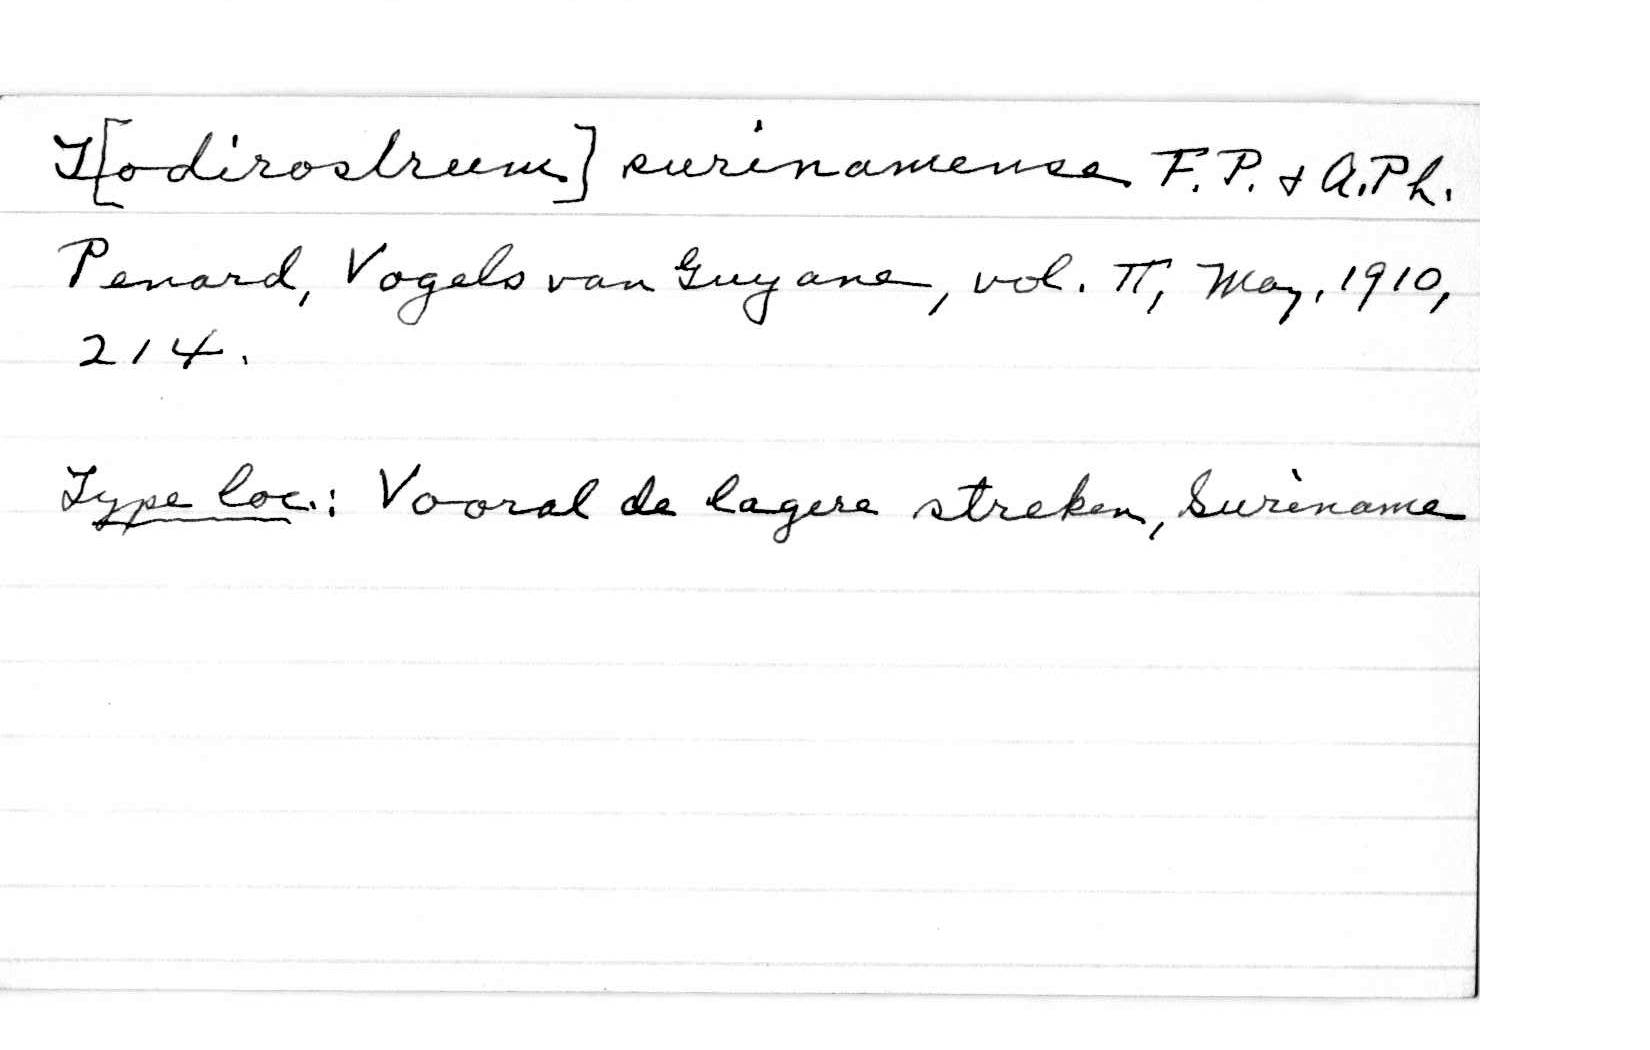 T[odirostrum] surinamense F. P. & A. Ph.
Penard, Vogels van Guyana, vol. II, May, 1910,
214.
Type loc.: Vooral de lagere streken, Suriname